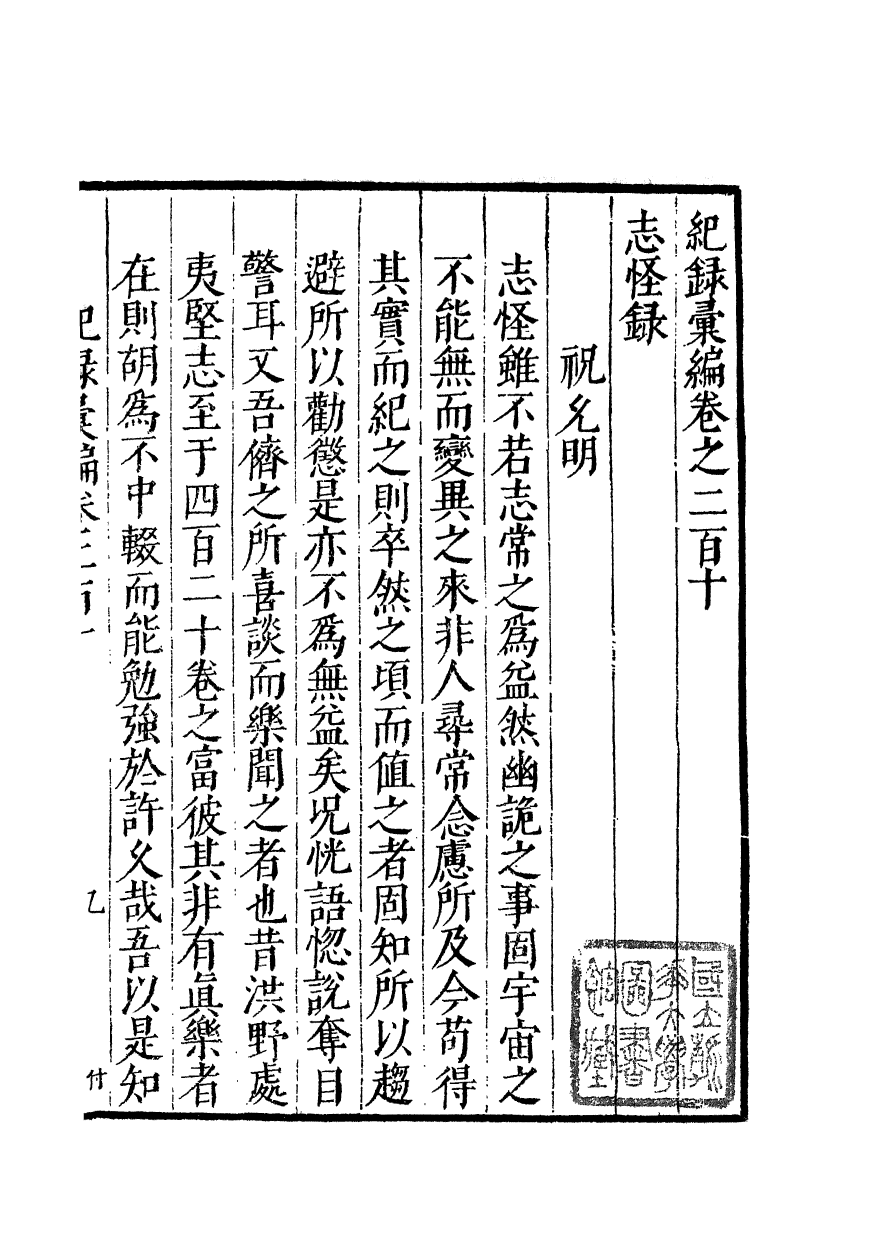 紀録彚編卷之二百十
志怪録
祝允明
志怪雖不若志常之為益然幽詭之事固宇宙之
不能無而變異之來非人尋常念慮所及今苟得
其實而紀之則卒然之頃而值之者固知所以趨
避所以勸懲是亦不為無益矣况恍語惚說奪目
警耳又吾儕之所喜談而樂聞之者也昔洪野處
夷堅志至于四百二十卷之富彼其非有真樂者
在則胡為不中輟而能勉強於許久哉吾以是知
乙
付
國立
圖書